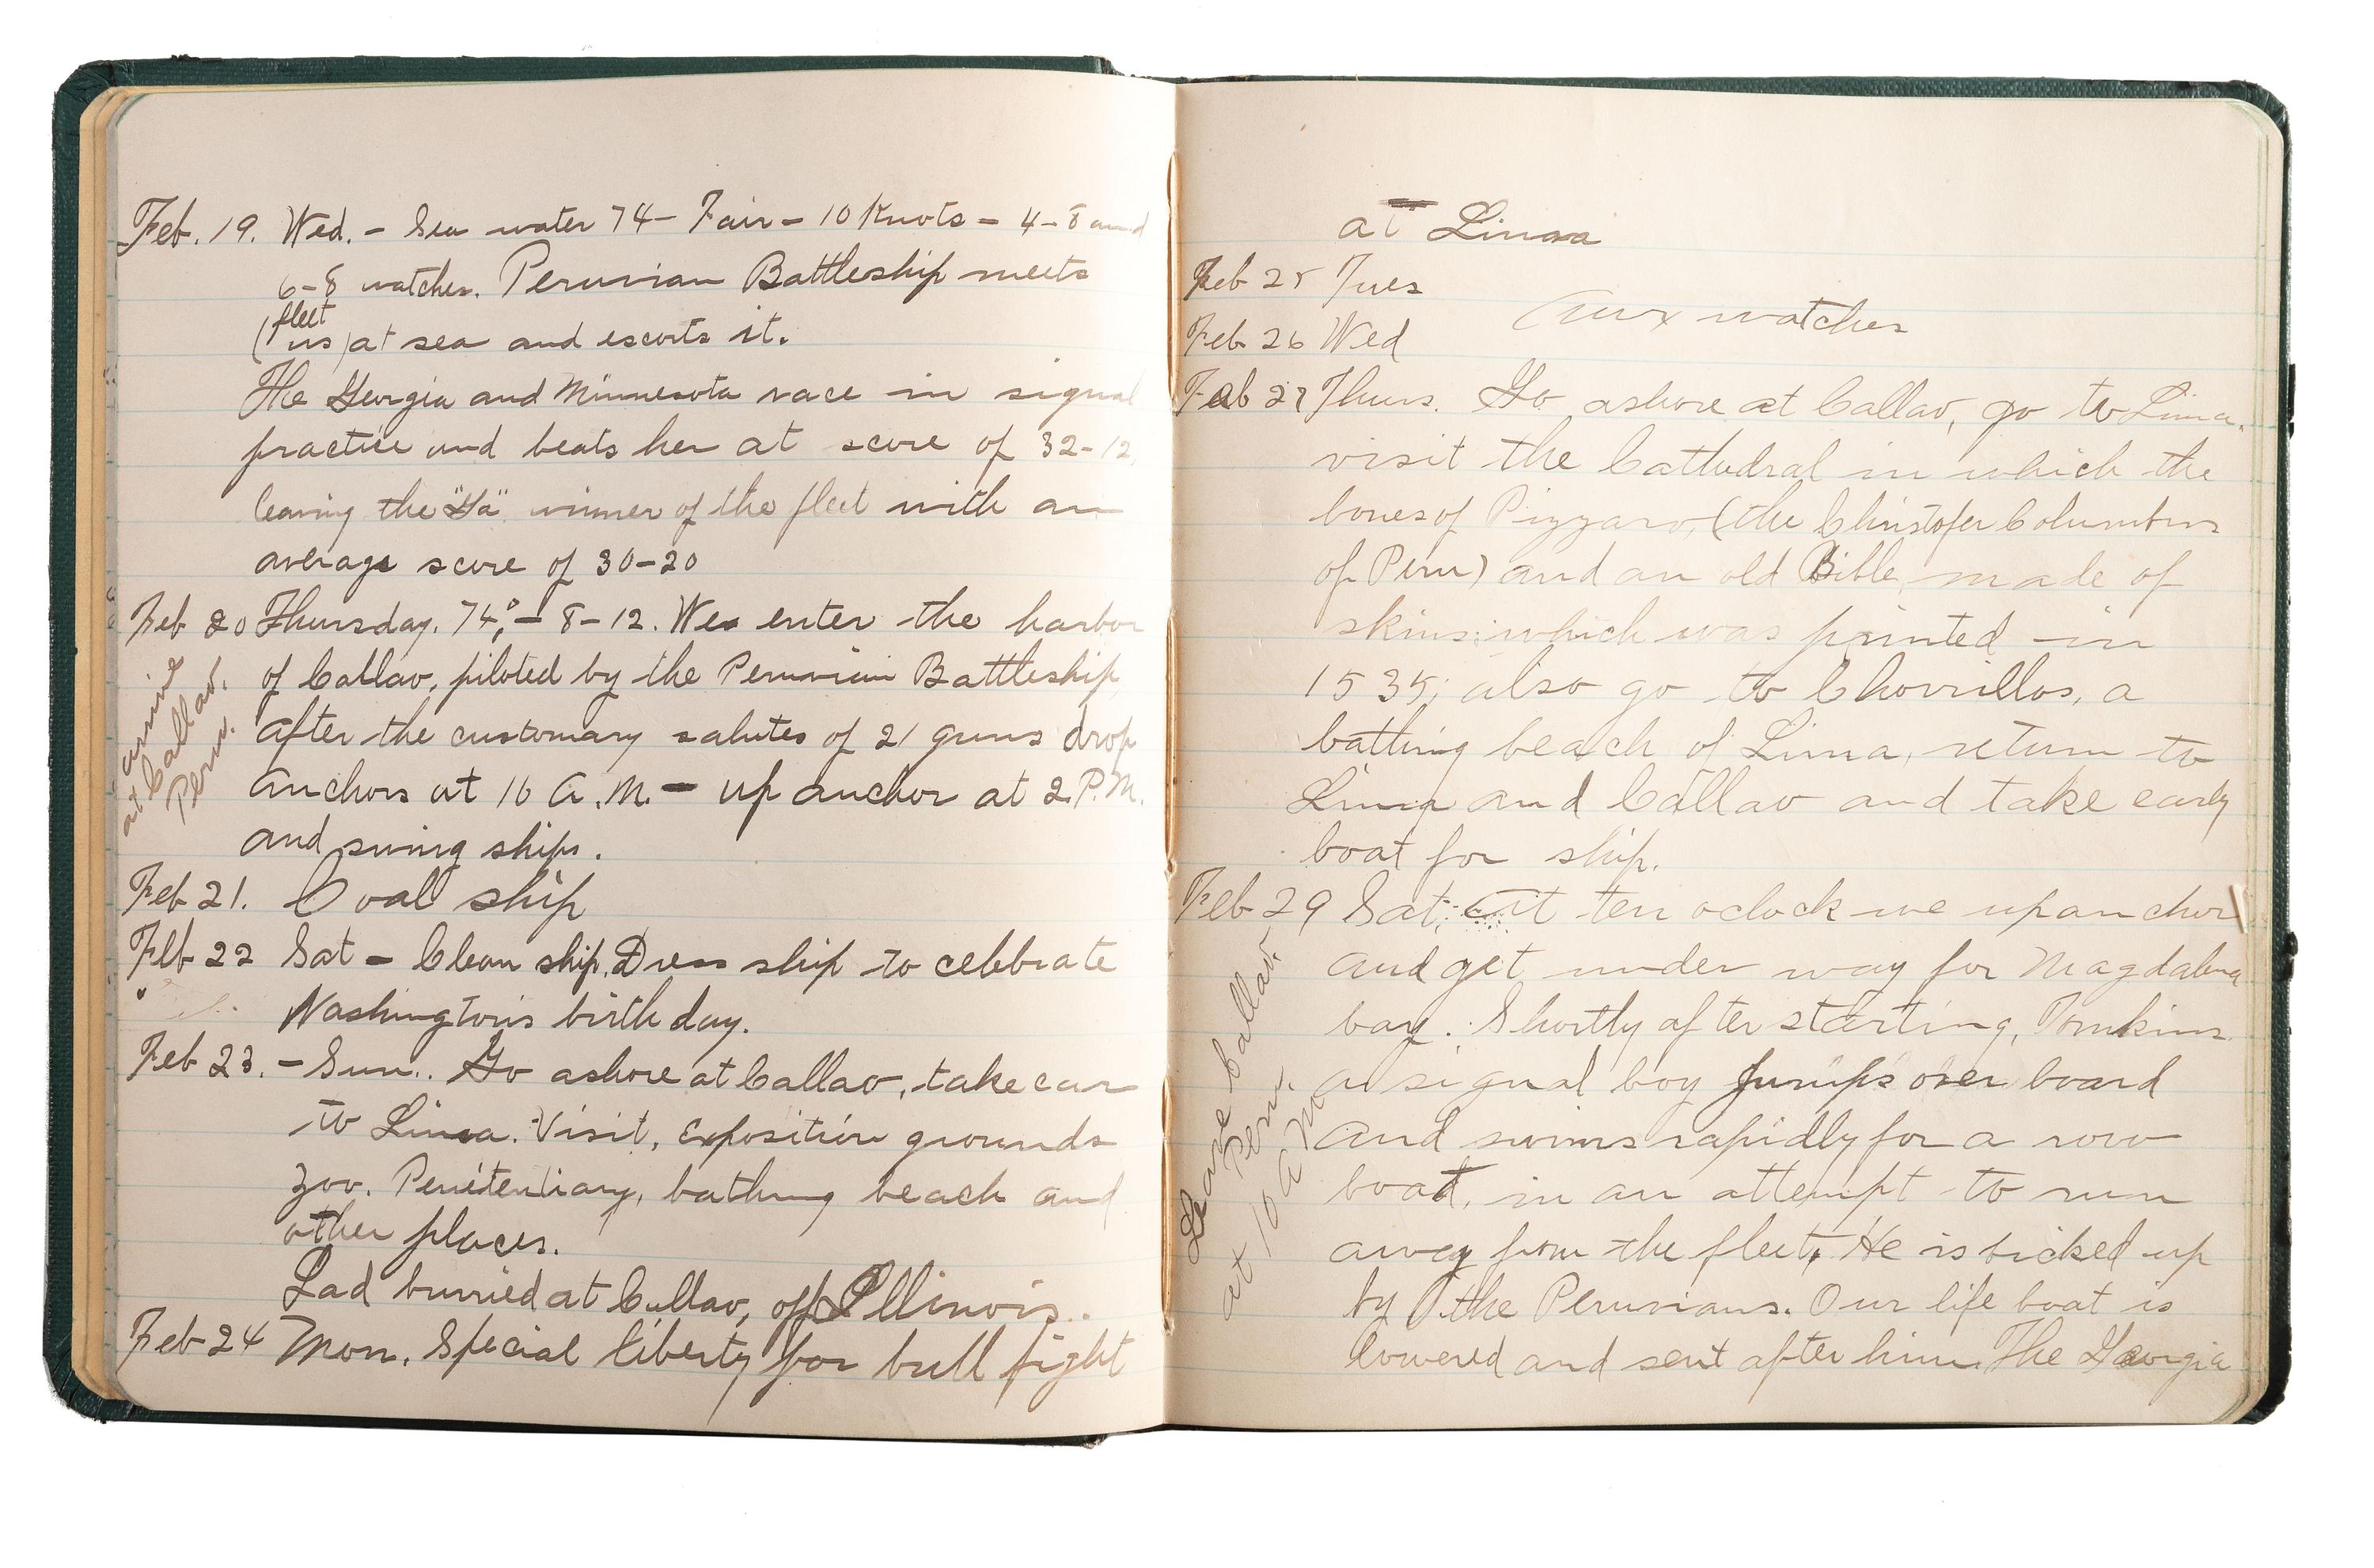 Feb. 19. Wed. - Sea water 74 - Fair - 10 Knots - 4-8 and
6-8 watches. Peruvian Battleship meets
fleet
(us) at sea and escorts it.
The Georgia and Minnesota race in signal
practice and beats her at score of 32-12,
leaving the "Ga" winner of the fleet with an
average score of 30-20
Feb 20 Thursday. 74° - 8-12. We enter the harbor
of Callao, piloted by the Peruvian Battleship
after the customary salutes of 21 guns drop
anchors at 10 A.M. - up anchor at 2 P.M.
and swing ships.
arrive
at Callao,
Peru.
Feb 21. Coal ship
Feb 22 Sat - Clean ship. Dress ship to celebrate
Washington's birth day.
Feb 23. - Sun.. Go ashore at Callao, take car
to Lima. Visit, Exposition grounds
Zoo. Penitentiary, bathing beach and
other places.
Lad burried at Callao, off Illinois.
Feb 24 Mon. Special liberty for bull fight
at Lima
Feb 25 Tues
watches
Feb 26 Wed
Feb 27 Thurs. Go ashore at Callao, go to Lima,
visit the Cathedral in which the
bones of Pizzaro, (the Christofer Columbus
of Peru) and an old Bible made of
skins: which was printed in
1535; also go to Chorrillos, a
bathing beach of Lima, return to
Lima and Callao and take early
boat for ship.
Feb 29 Sat; at ten oclock we up anchor
and get under way for Magdalena
bay. Shortly after starting, Tomkins
a signal boy jumps over board
and swims rapidly for a row
boat, in an attempt to run
away from the fleet. He is picked up
by the Peruvians. Our life boat is
lowered and sent after him. The Georgia
Leave Callao
Peru.
at 10 A M